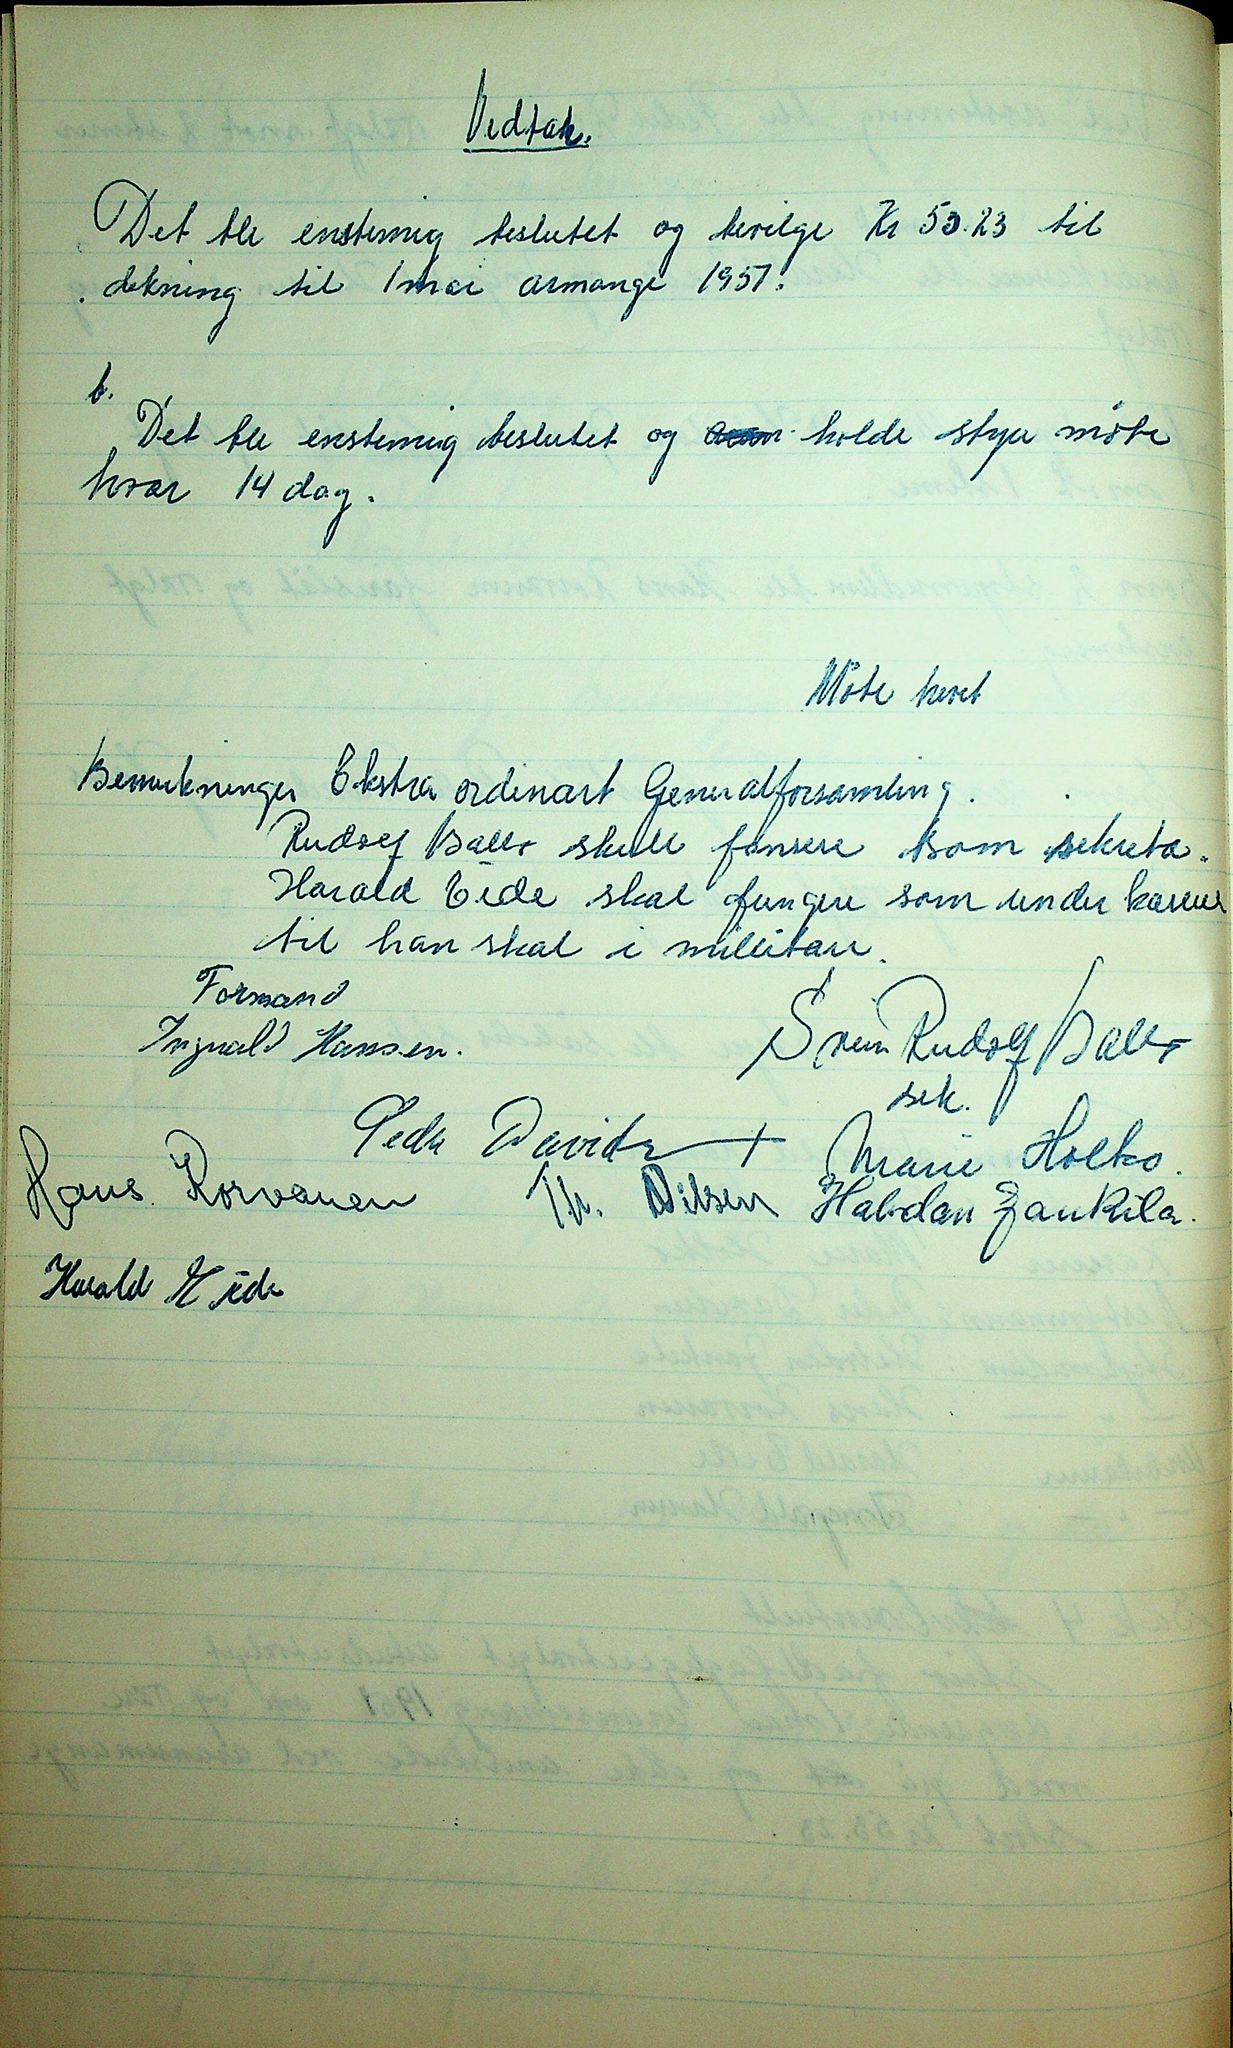 Vedtak.
Det ble enstemig beslutet og bevilge Kr 53.23 til
dekning til 1 mai armange 1951.
b.
Det ble enstemig beslutet og holde styre møte
hver 14 dag.
Møte hevet
Bemerkninger Ekstra ordinært Generalforsamling.
Rudolf Ballo skulle som sekretæ.
Harald Eide skal fungere som under kaserer
til han skal i militære.
Formand
Ingvald Hansen.
Svein Rudolf Ballo
sek.
Peder Davids
Marie Holko.
Hans Korvanen
Th. Nilsen Halvdan Jankila.
Harald Eide